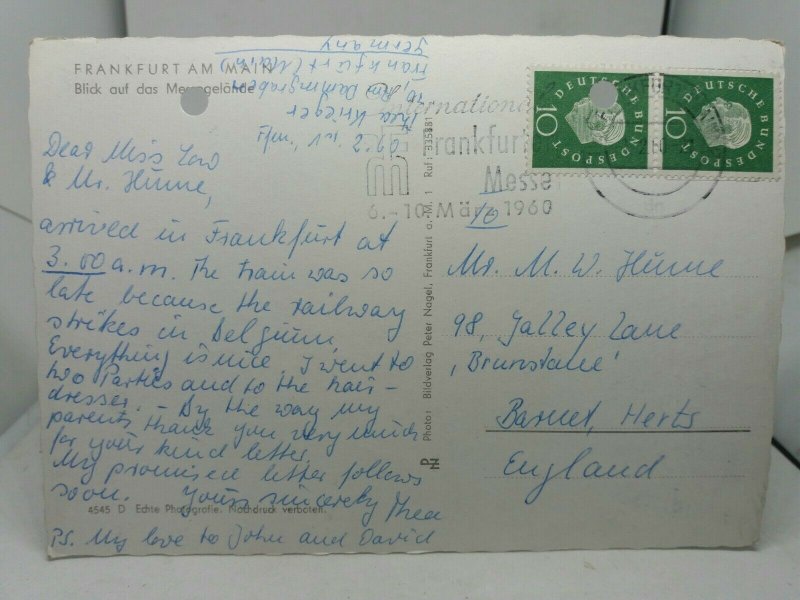 FRANKFURT AM MAIN
Blick auf das Messegelände
Thea Krieger
Frankfurt (Main)
Germany
Ffm, 1. 2. 60
Dear Miss
& Mr. Hume,
arrived in Frankfurt at
3.00 a.m. The train was so
late, because the railway
strikes in Belgium.
Everything is nice. I went to
two Parties and to the hair-
dresser. – By the way my
parents thank you very much
for your kind letter.
My promised letter follows
soon. Yours sincerely Thea
4545 D Echte Photografie. Nachdruck verboten.
PS. My love to John and David
Photo: Bildverlag Peter Nagel, Frankfurt a. M. 1 Ruf: 335881
Internationale
Frankfurter
Messe
6.-10. März 1960
DEUTSCHE BUNDESPOST
10
DEUTSCHE BUNDESPOST
10
To
Mr. M. W. Hume
98, Galley Lane
"Brunstane"
Barnet, Herts
England